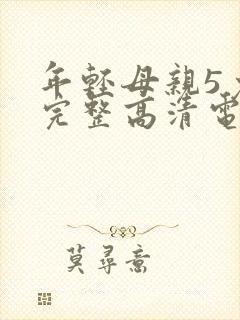 年輕母親5
完整高清電
莫尋意